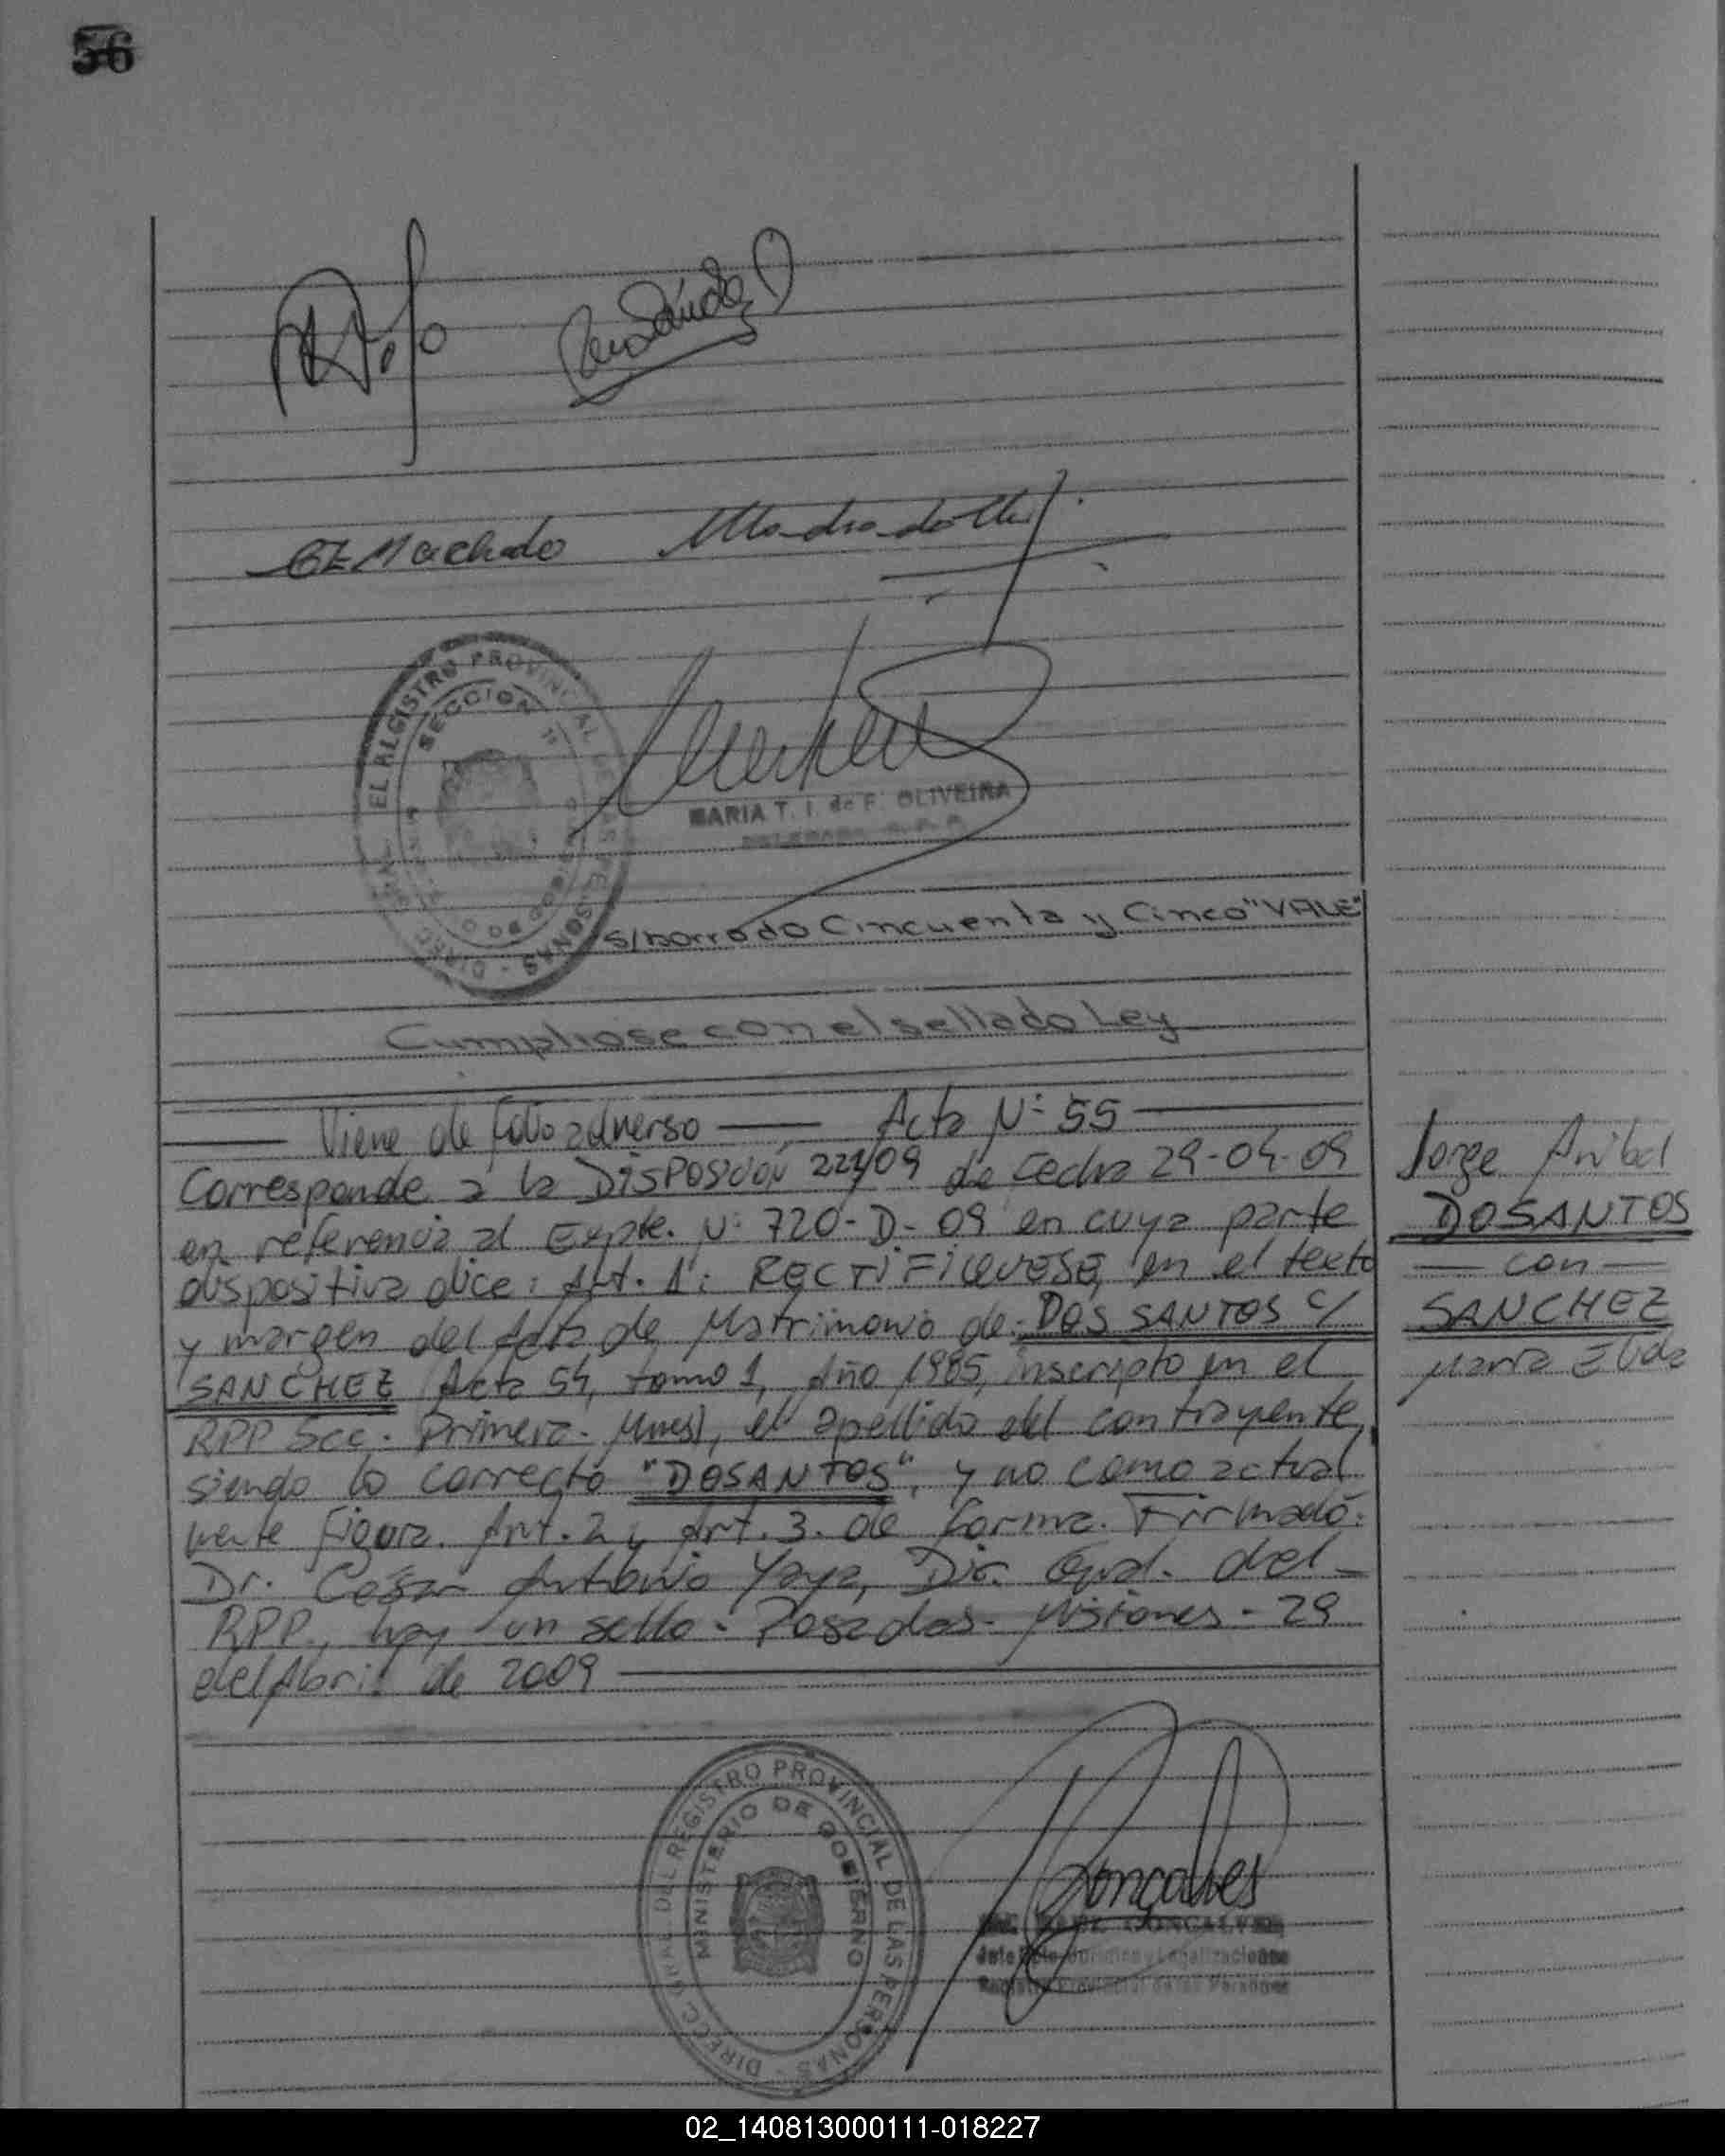 56
Sánchez
CEMachado
DIREC. GRAL. DEL REGISTRO PROVINCIAL DE LAS PERSONAS
SECCION 1a
MARIA T. I. de F. OLIVEIRA
S/borrado Cincuenta y Cinco "VALE"
Cumpliose con el sellado Ley
Viene de folio adverso — Acta Nº 55
Corresponde a la DISPOSICIÓN 221/09 de fecha 29-04-09
en referencia al Expte. Nº 720-D-09 en cuya parte
dispositiva dice: Art. 1º: RECTIFIQUESE, en el texto
y margen del Acta de Matrimonio de: DOS SANTOS c/
SANCHEZ Acta 54, tomo 1, Año 1985, inscripto en el
RPP Secc. Primera. Mnes), el apellido del contrayente,
siendo lo correcto "DOSANTOS", y no como actual
mente figura. Art. 2 y Art. 3. de forma. Firmado:
Dr. César Antonio Yaya, Dir. Gral. del
RPP., hay un sello. Posadas - Misiones - 29
del Abril de 2009
Jorge Anibal
DOSANTOS
— con —
SANCHEZ
María Elida
DIRECC. GRAL. DEL REGISTRO PROVINCIAL DE LAS PERSONAS
MINISTERIO DE GOBIERNO
Gonçalves
GONCALVES
y Legalizaciones
Registro Provincial de las Personas
02_140813000111-018227